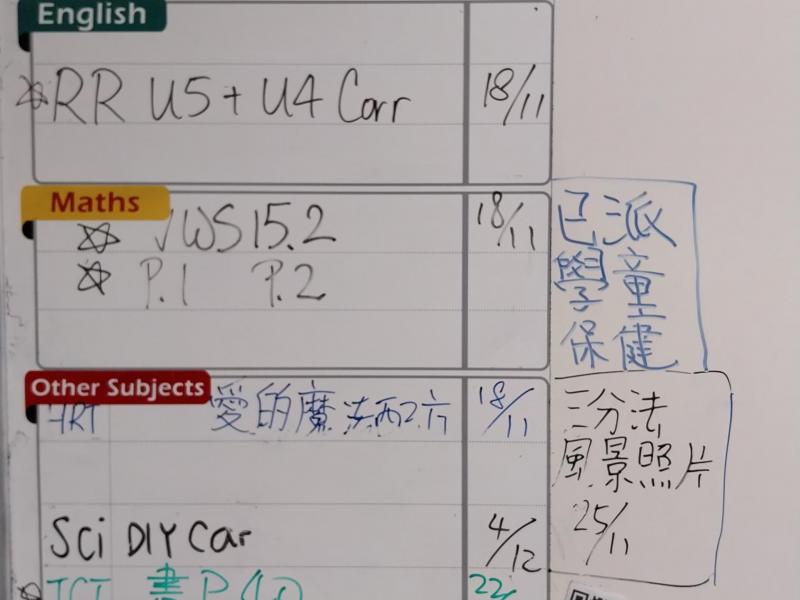 English
RR U5 + U4 Corr 18/11
Maths
√ WS 15.2 18/11
P.1 P.2
Other Subjects
ART 愛的魔法 18/11
Sci DIY Car 4/12
ICT 書 P 22
已派
學童
保健
三分法
風景照片
25/11